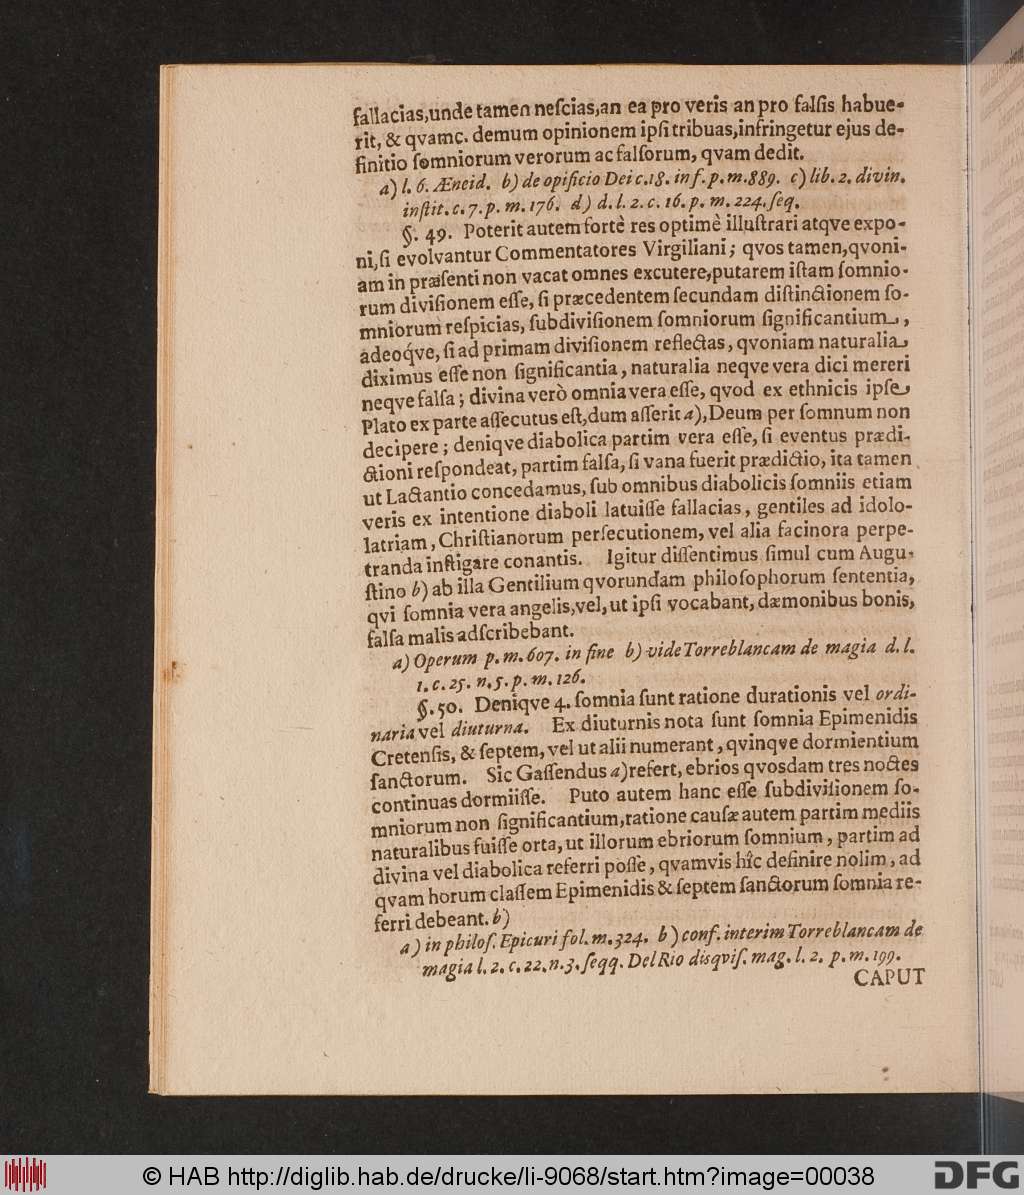 fallacias,unde tamen neſcias,an ea pro veris an pro falſis habue-
rit, & qvamc. demum opinionem ipſi tribuas,infringetur ejus de-
finitio ſomniorum verorum ac falſorum, qvam dedit.
a) l. 6. Æneid. b) de opificio Dei c.18. in f. p. m. 889. c) lib. 2. divin.
inſtit. c. 7. p. m. 176. d) d. l. 2. c. 16. p. m. 224. ſeq.
§. 49. Poterit autem fortè res optimè illuſtrari atqve expo-
ni,ſi evolvantur Commentatores Virgiliani; qvos tamen,qvoni-
am in præſenti non vacat omnes excutere,putarem iſtam ſomnio-
rum diviſionem eſſe, ſi præcedentem ſecundam diſtinctionem ſo-
mniorum reſpicias, ſubdiviſionem ſomniorum ſignificantium,
adeoq́ve, ſi ad primam diviſionem reflectas, qvoniam naturalia
diximus eſſe non ſignificantia, naturalia neqve vera dici mereri
neqve falſa; divina verò omnia vera eſſe, qvod ex ethnicis ipſe
Plato ex parte aſſecutus eſt,dum aſſerit a),Deum per ſomnum non
decipere; deniqve diabolica partim vera eſſe, ſi eventus prædi-
ctioni reſpondeat, partim falſa, ſi vana fuerit prædictio, ita tamen
ut Lactantio concedamus, ſub omnibus diabolicis ſomniis etiam
veris ex intentione diaboli latuiſſe fallacias, gentiles ad idolo-
latriam, Chriſtianorum perſecutionem, vel alia facinora perpe-
tranda inſtigare conantis. Igitur diſſentimus ſimul cum Augu-
ſtino b) ab illa Gentilium qvorundam philoſophorum ſententia,
qvi ſomnia vera angelis,vel, ut ipſi vocabant, dæmonibus bonis,
falſa malis adſcribebant.
a) Operum p. m. 607. in fine b) vide Torreblancam de magia d. l.
1. c. 25. n. 5. p. m. 126.
§. 50. Deniqve 4. ſomnia ſunt ratione durationis vel ordi-
naria vel diuturna. Ex diuturnis nota ſunt ſomnia Epimenidis
Cretenſis, & ſeptem, vel ut alii numerant, qvinqve dormientium
ſanctorum. Sic Gaſſendus a)refert, ebrios qvosdam tres noctes
continuas dormiiſſe. Puto autem hanc eſſe ſubdiviſionem ſo-
mniorum non ſignificantium,ratione cauſæ autem partim mediis
naturalibus fuiſſe orta, ut illorum ebriorum ſomnium, partim ad
divina vel diabolica referri poſſe, qvamvis hîc definire nolim, ad
qvam horum claſſem Epimenidis & ſeptem ſanctorum ſomnia re-
ferri debeant. b)
a) in philoſ. Epicuri fol. m. 324. b) conf. interim Torreblancam de
magia l. 2. c. 22. n. 3. ſeqq. Del Rio disqviſ. mag. l. 2. p. m. 199.
CAPUT
© HAB http://diglib.hab.de/drucke/li-9068/start.htm?image=00038
DFG